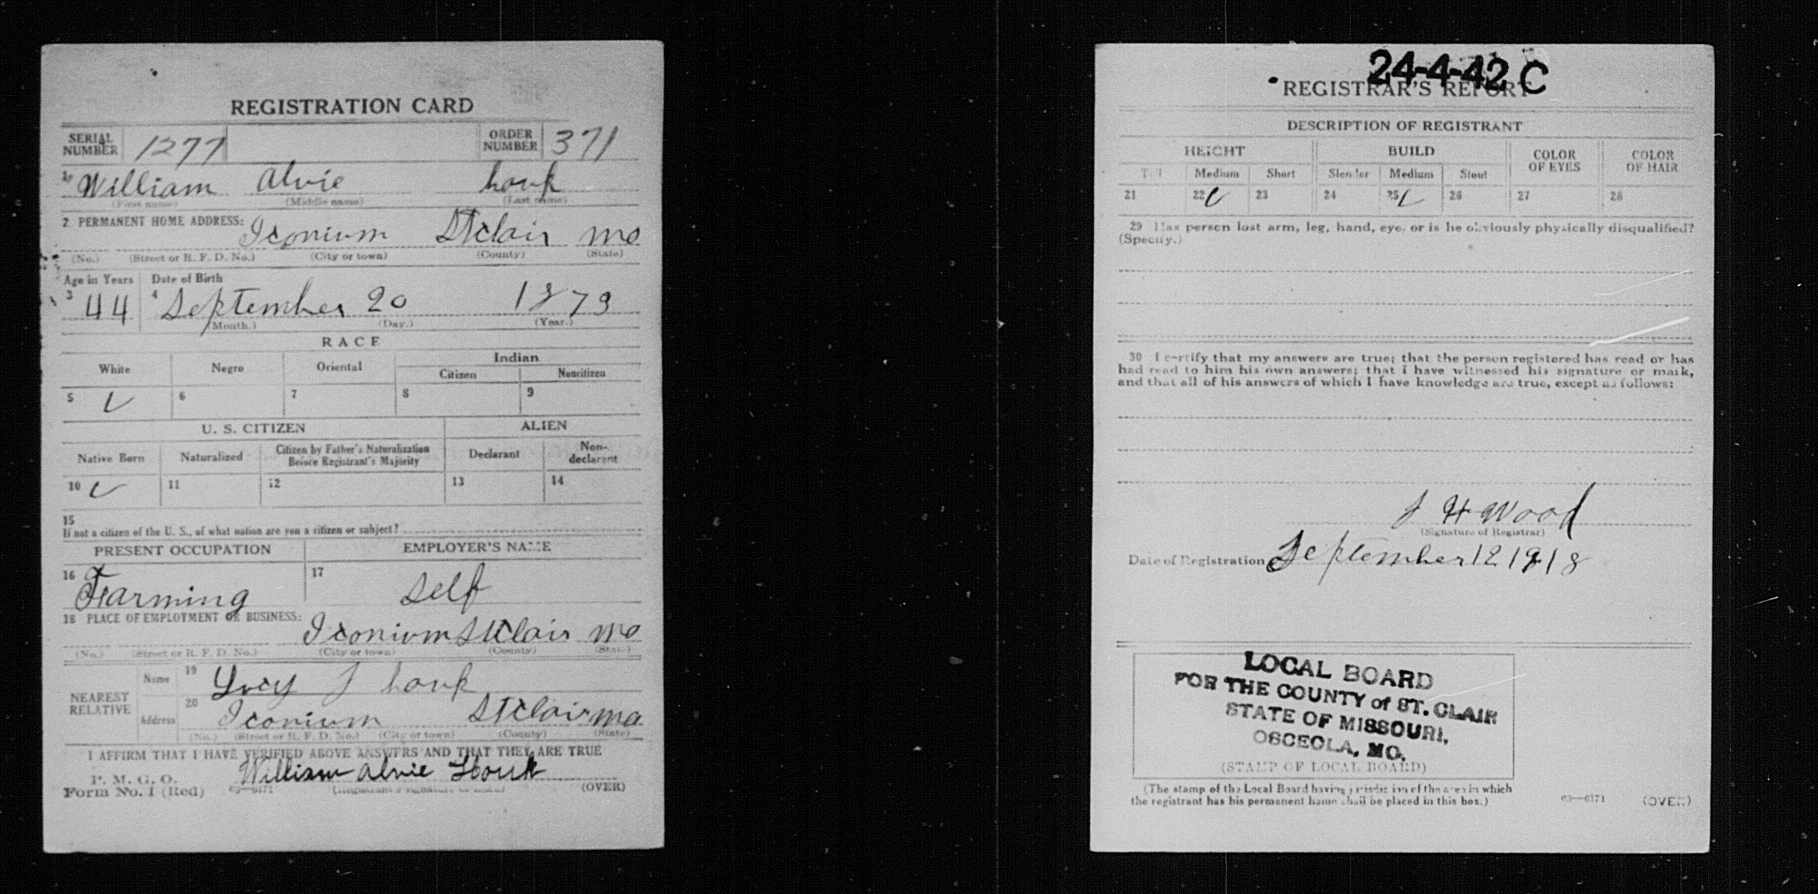 REGISTRATION CARD
SERIAL NUMBER 1277 ORDER NUMBER 371
1 William Alvie Houk
(First name) (Middle name) (Last name)
2 PERMANENT HOME ADDRESS: Iconium St Clair Mo
(No.) (Street or R. F. D. No.) (City or town) (County) (State)
Age in Years Date of Birth
3 44 4 September 20 1873
(Month.) (Day.) (Year.)
RACE
White Negro Oriental Indian
Citizen Noncitizen
5 6 7 8 9
U. S. CITIZEN ALIEN
Native Born Naturalized Citizen by Father's Naturalization Before Registrant's Majority Declarant Non-declarant
10 11 12 13 14
15
If not a citizen of the U. S., of what nation are you a citizen or subject?
PRESENT OCCUPATION EMPLOYER'S NAME
16 Farming 17 Self
18 PLACE OF EMPLOYMENT OR BUSINESS: Iconium St Clair Mo
(No.) (Street or R. F. D. No.) (City or town) (County) (State)
NEAREST RELATIVE Name 19 Lucy J Houk
Address 20 Iconium St Clair Mo
(No.) (Street or R. F. D. No.) (City or town) (County) (State)
I AFFIRM THAT I HAVE VERIFIED ABOVE ANSWERS AND THAT THEY ARE TRUE
P. M. G. O.
William Alvie Houk
Form No. 1 (Red) 03—6171 (Registrant's signature or mark) (OVER)
24-4-42 C
REGISTRAR'S REPORT
DESCRIPTION OF REGISTRANT
HEIGHT BUILD COLOR OF EYES COLOR OF HAIR
Tall Medium Short Slender Medium Stout
21 22 23 24 25 26 27 28
29 Has person lost arm, leg, hand, eye, or is he obviously physically disqualified?
(Specify.)
30 I certify that my answers are true; that the person registered has read or has
had read to him his own answers; that I have witnessed his signature or mark,
and that all of his answers of which I have knowledge are true, except as follows:
J H Wood
(Signature of Registrar)
Date of Registration September 12 1918
LOCAL BOARD
FOR THE COUNTY of ST. CLAIR
STATE OF MISSOURI,
OSCEOLA, MO.
(STAMP OF LOCAL BOARD)
(The stamp of the Local Board having jurisdiction of the area in which
the registrant has his permanent home shall be placed in this box.)
03—6171 (OVER)